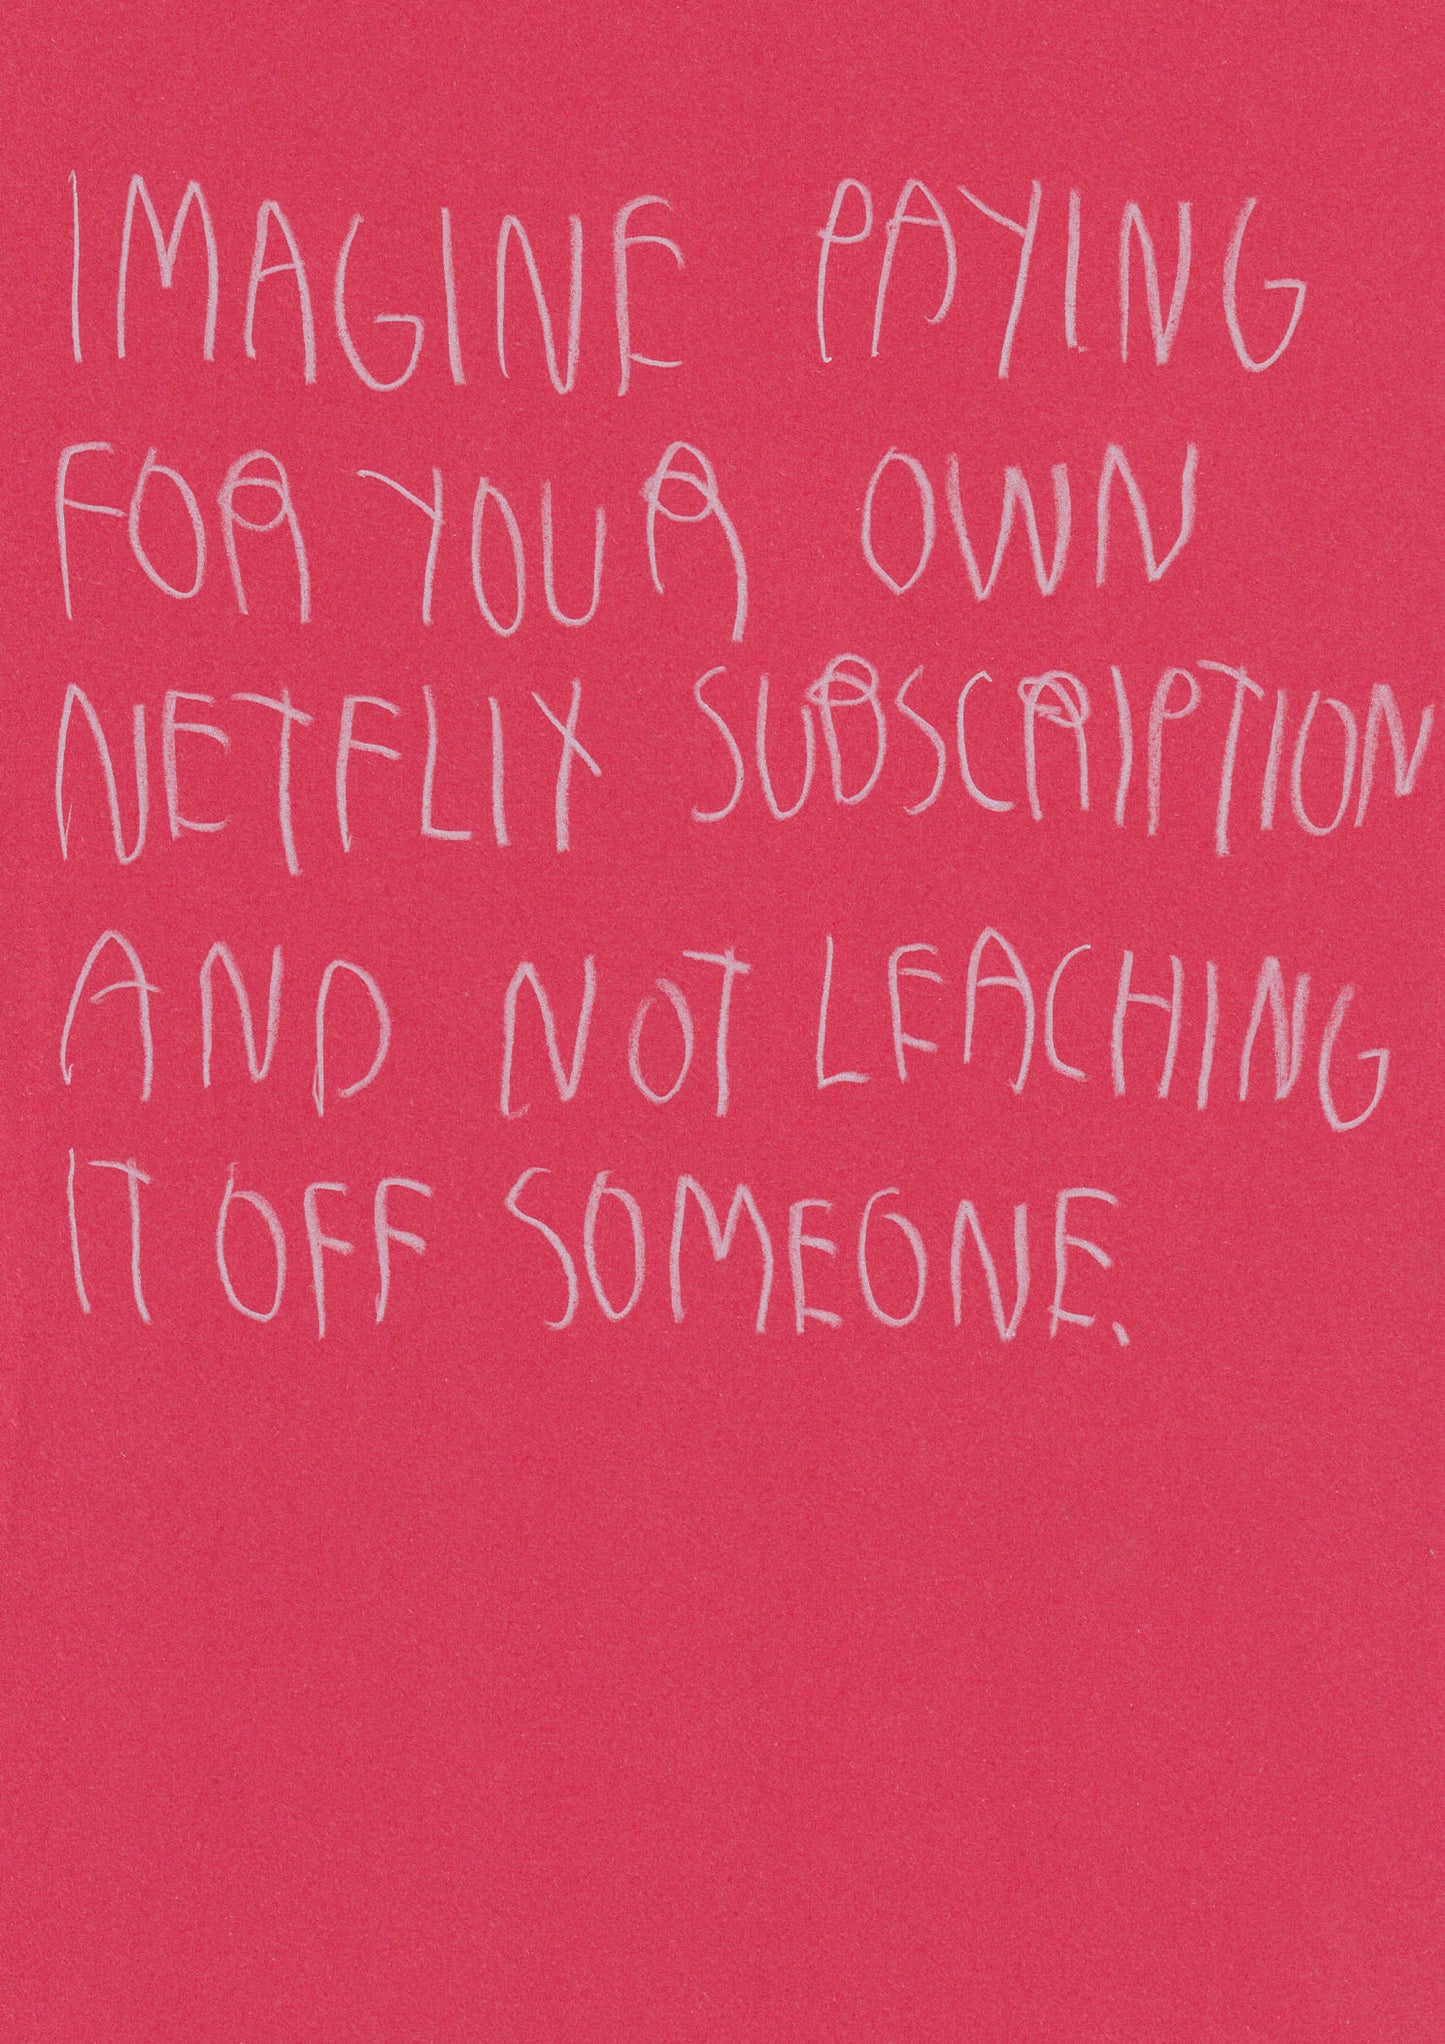 IMAGINE PAYING
FOR YOUR OWN
NETFLIX SUBSCRIPTION
AND NOT LEACHING
IT OFF SOMEONE.